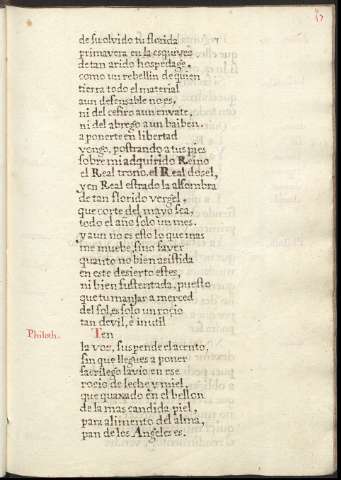 17
de su olvido tu florida
primavera en la esquivez
de tan arido hospedage,
como un rebellin de quien
tierra todo el material
aun defensable no es,
ni del cefiro aun envate,
ni del abrego a un baiben.
a ponerte en libertad
vengo, postrando a tus pies
sobre mi adquirido Reino
el Real trono, el Real dosel,
y en Real estrado la alfombra
de tan florido vergel,
que corte del mayo sea,
todo el año solo un mes.
y aun no es esto lo que mas
me muebe, sino saver
quanto no bien asistida
en este desierto estes,
ni bien sustentada, puesto
que tu manjar a merced
del sol, es solo un rocio
tan devil, e inutil
Philoth. Ten
la voz, suspende el acento,
sin que llegues a poner
sacrilego lavio en ese
rocio de leche y miel,
que quaxado en el bellon
de la mas candida piel,
para alimento del alma,
pan de los Angeles es.